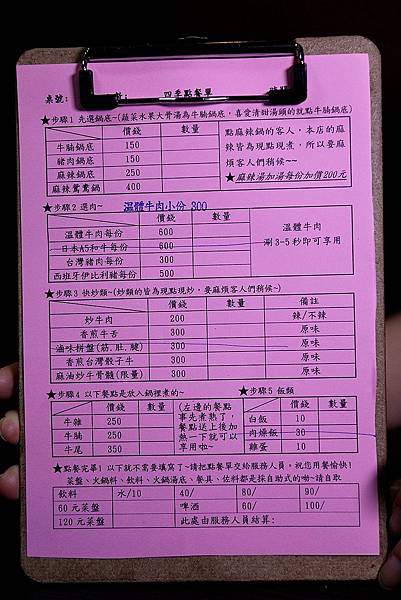 桌號:
四季點餐單
★步驟1 先選鍋底~(蔬菜水果大骨湯為牛腩鍋底,喜愛清甜湯頭的就點牛腩鍋底)
價錢 數量
牛腩鍋底 150
豬肉鍋底 150
麻辣鍋底 250
麻辣鴛鴦鍋 400
點麻辣鍋的客人,本店的麻
辣皆為現點現煮,所以要麻
煩客人們稍候~~
★麻辣湯加湯每份加價200元
★步驟2 選肉~ 溫體牛肉小份 300
價錢 數量
溫體牛肉每份 600
日本A5和牛每份 600
台灣豬肉每份 300
西班牙伊比利豬每份 500
溫體牛肉
涮3-5秒即可享用
★步驟3 快炒類~(炒類的皆為現點現炒,要麻煩客人們稍候~)
價錢 數量 備註
炒牛肉 200 辣/不辣
香煎牛舌 300 原味
滷味拼盤(筋.肚.腱) 300 原味
香煎台灣骰子牛 300 原味
麻油炒牛骨髓(限量) 300 原味
★步驟4 以下餐點是放入鍋裡煮的~
價錢 數量
牛雜 250
牛腩 250
牛尾 350
(左邊的餐點
事先煮熟了,
餐點送上後加
熱一下就可以
享用啦~
★步驟5 飯類
價錢 數量
白飯 10
肉燥飯 30
雞蛋 10
★點餐完畢!以下就不需要填寫了~請把點餐單交給服務人員。祝您用餐愉快!
菜盤、火鍋料、飲料、火鍋湯底、餐具、佐料都是採自助式的喲~請自取
飲料 水/10 40/ 80/ 90/
60元菜盤 啤酒 60/ 100/
120元菜盤 此處由服務人員結算: